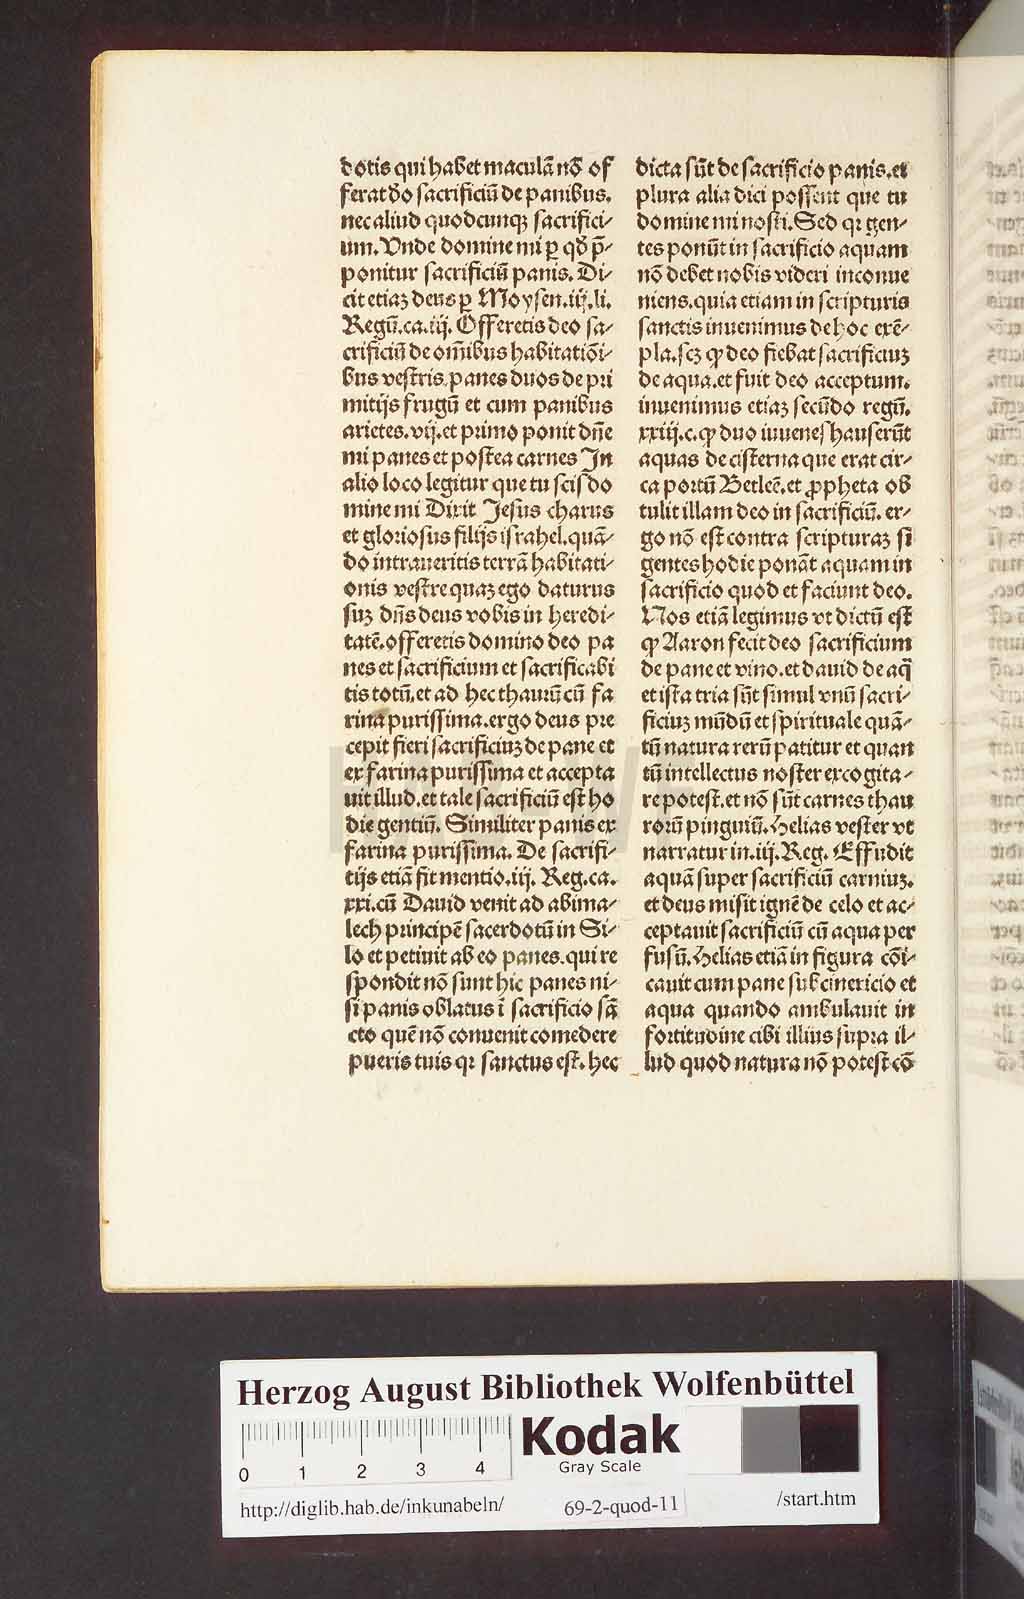 dotis qui habet maculā nō of
ferat deo sacrificiū de panibus.
nec aliud quodcunqꝫ sacrifici⸗
um. Unde domine mi ꝑ qđ p̄⸗
ponitur sacrificiū panis. Di⸗
cit etiaꝫ deus ꝑ Moysen.iij.li.
Regū.ca.iij. Offeretis deo sa⸗
crificiū de om̄ibus habitatiōi⸗
bus vestris panes duos de pri
mitijs frugū et cum panibus
arietes.vij.et primo ponit dn̄e
mi panes et postea carnes In
alio loco legitur que tu scis do
mine mi Dixit Jesus charus
et gloriosus filijs israhel.quā⸗
do intraueritis terrā habitati⸗
onis vestre quaꝫ ego daturus
suꝫ dn̄s deus vobis in heredi⸗
tatē.offeretis domino deo pa
nes et sacrificium et sacrificabi
tis totū.et ad hec thaurū cū fa
rina purissima.ergo deus pre
cepit fieri sacrificiuꝫ de pane et
ex farina purissima et accepta
uit illud.et tale sacrificiū est ho
die gentiū. Similiter panis ex
farina purissima. De sacrifi⸗
tijs etiā fit mentio.iij. Reg.ca.
xxi.cū Dauid venit ad abima⸗
lech principē sacerdotū in Si⸗
lo et petiuit ab eo panes.qui re
spondit nō sunt hic panes ni⸗
si panis oblatus ī sacrificio sā
cto quē nō conuenit comedere
pueris tuis qꝛ sanctus est. hec
dicta sūt de sacrificio panis.et
plura alia dici possent que tu
domine mi nosti. Sed qꝛ gen⸗
tes ponūt in sacrificio aquam
nō debet nobis videri inconue
niens.quia etiam in scripturis
sanctis inuenimus de hoc exē⸗
pla.scꝫ ꝙ deo fiebat sacrificiuꝫ
de aqua.et fuit deo acceptum.
inuenimus etiaꝫ secūdo regū.
xxiij.c.ꝙ duo iuuenes hauserūt
aquas de cisterna que erat cir⸗
ca portū Betleē.et ꝓpheta ob
tulit illam deo in sacrificiū. er⸗
go nō est contra scripturaꝫ si
gentes hodie ponāt aquam in
sacrificio quod et faciunt deo.
Nos etiā legimus vt dictū est
ꝙ Aaron fecit deo sacrificium
de pane et vino.et dauid de aq̄
et ista tria sūt simul vnū sacri⸗
ficiuꝫ mūdū et spirituale quā⸗
tū natura rerū patitur et quan
tū intellectus noster excogita⸗
re potest.et nō sūt carnes thau
rorū pinguiū. Helias vester vt
narratur in.iij.Reg. Effudit
aquā super sacrificiū carniuꝫ.
et deus misit ignē de celo et ac⸗
ceptauit sacrificiū cū aqua per
fusū. Helias etiā in figura cōi⸗
cauit cum pane subcinericio et
aqua quando ambulauit in
fortitudine cibi illius supra il⸗
lud quod natura nō potest cō
HAB WF
Herzog August Bibliothek Wolfenbüttel
0 1 2 3 4
Kodak
Gray Scale
http://diglib.hab.de/inkunabeln/ 69-2-quod-11 /start.htm